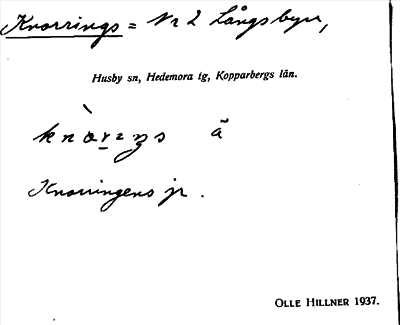 Knorrings = Nr 2 Långsbyn,
Husby sn, Hedemora tg, Kopparbergs län.
ã
Knorringens jr.
OLLE HILLNER 1937.